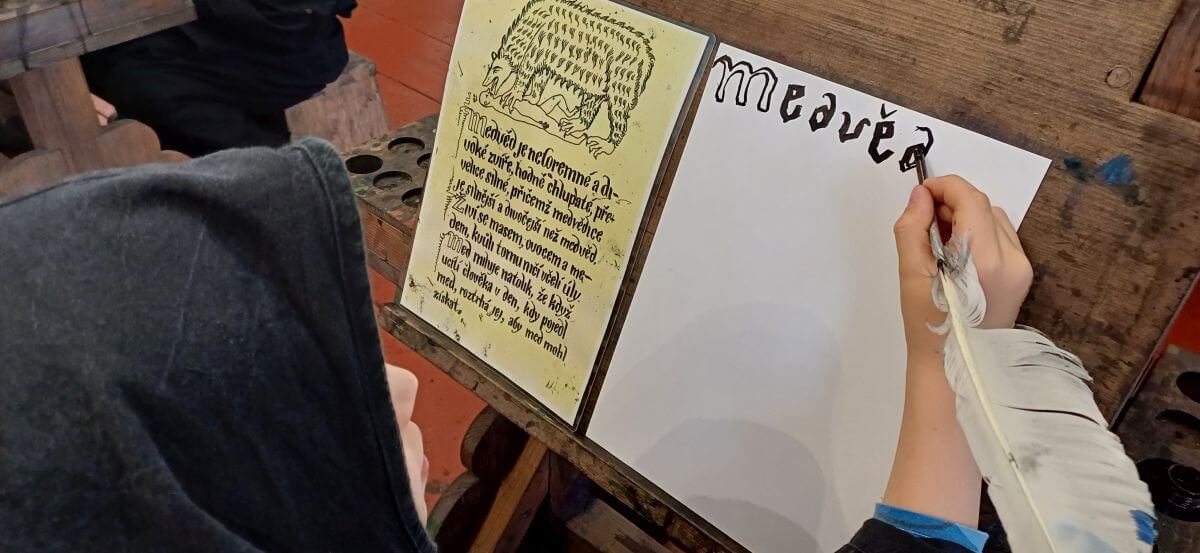 Medvěd je neforemné a di-
voké zvíře, hodně chlupaté, pře-
velice silné, přičemž medvědice
je silnější a divočejší než medvěd.
Živí se masem, ovocem a me-
dem, kvůli tomu ničí včelí úly.
Med miluje natolik, že když
ucítí člověka v den, kdy pojedl
med, roztrhá jej, aby med mohl
získat.
Medvěd